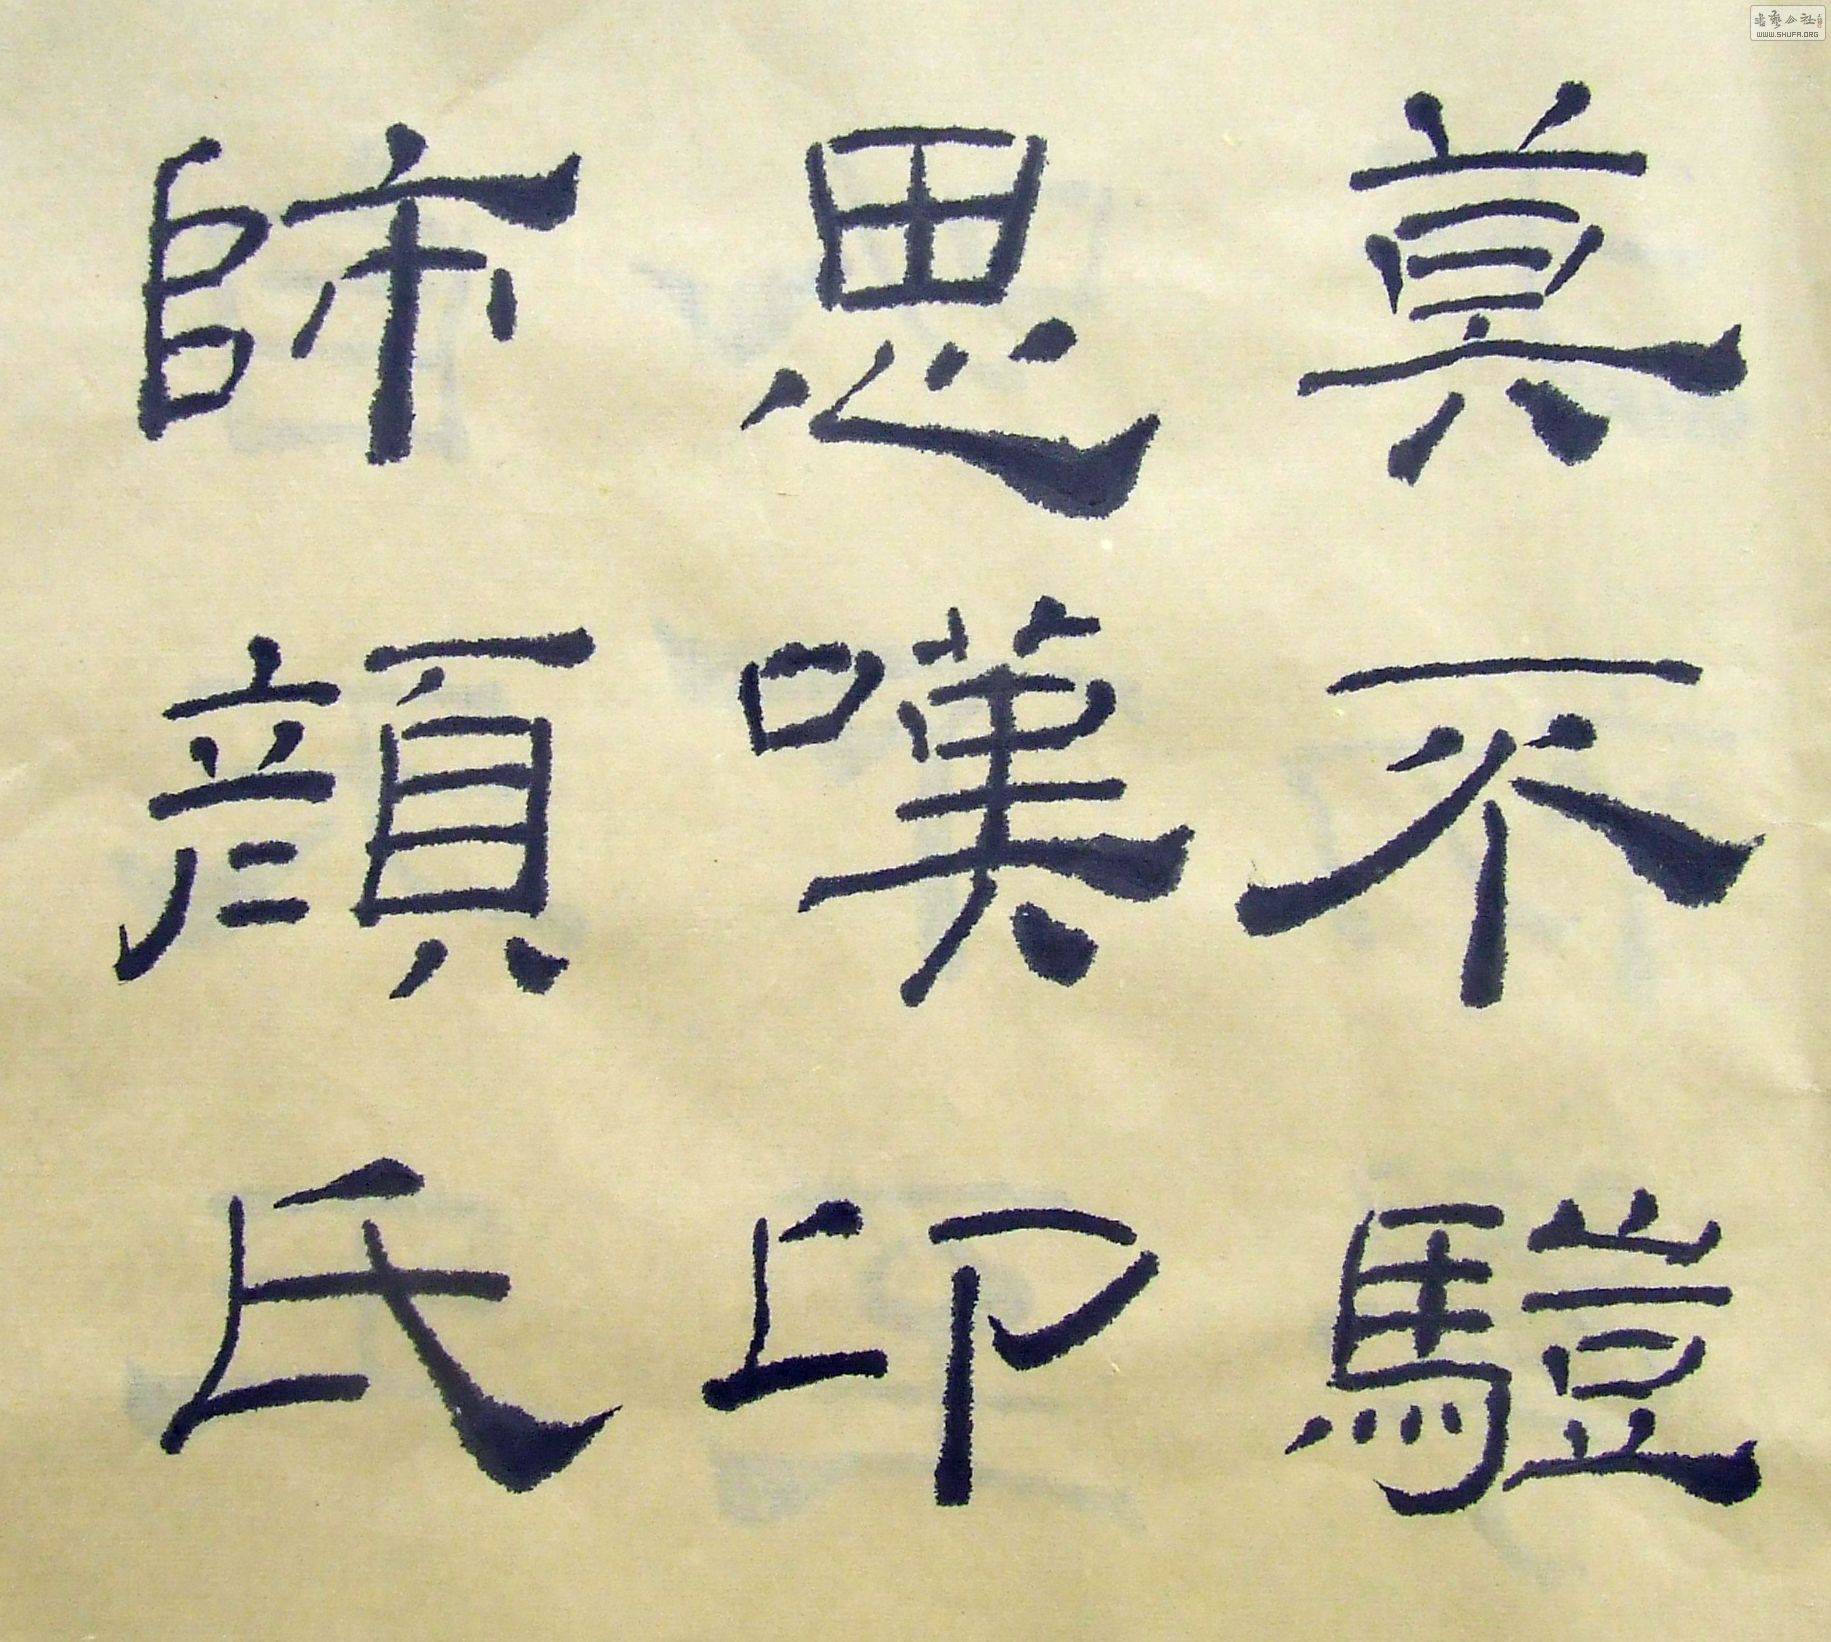 莫不騹
思嘆卬
師顏氏
書藝公社
WWW.SHUFA.ORG